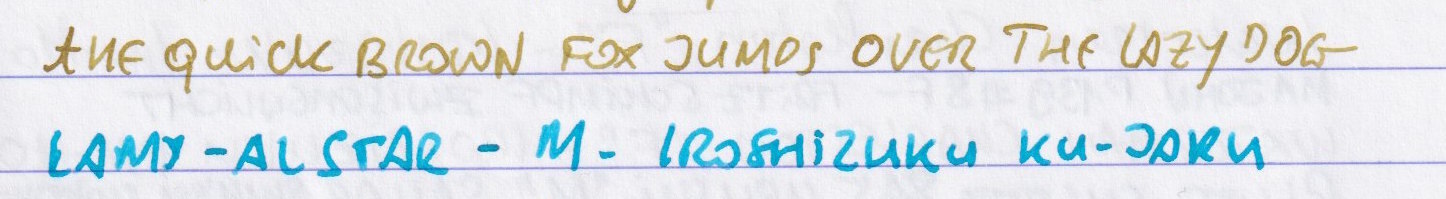 tHE quick BROWN FOX JUMPS OVER THE LAZY DOG
LAMY - AL STAR - M - IROSHIZUKU KU-JAKU